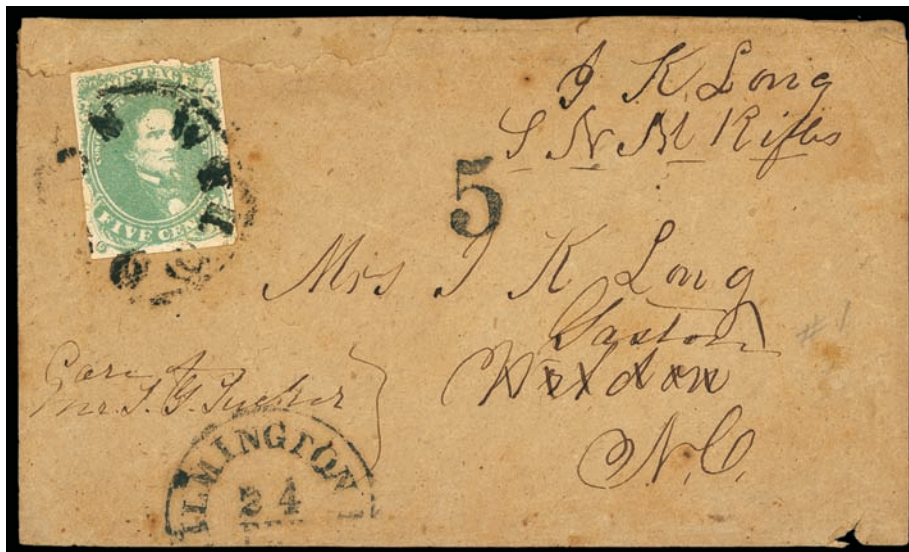 POSTAGE
FIVE CENTS
J K Long
S N M Rifles
5
Mrs J K Long
Gaston
Weldon
N.C.
# 1
Care of
Mr. T. G. Tucker
ILMINGTON
24